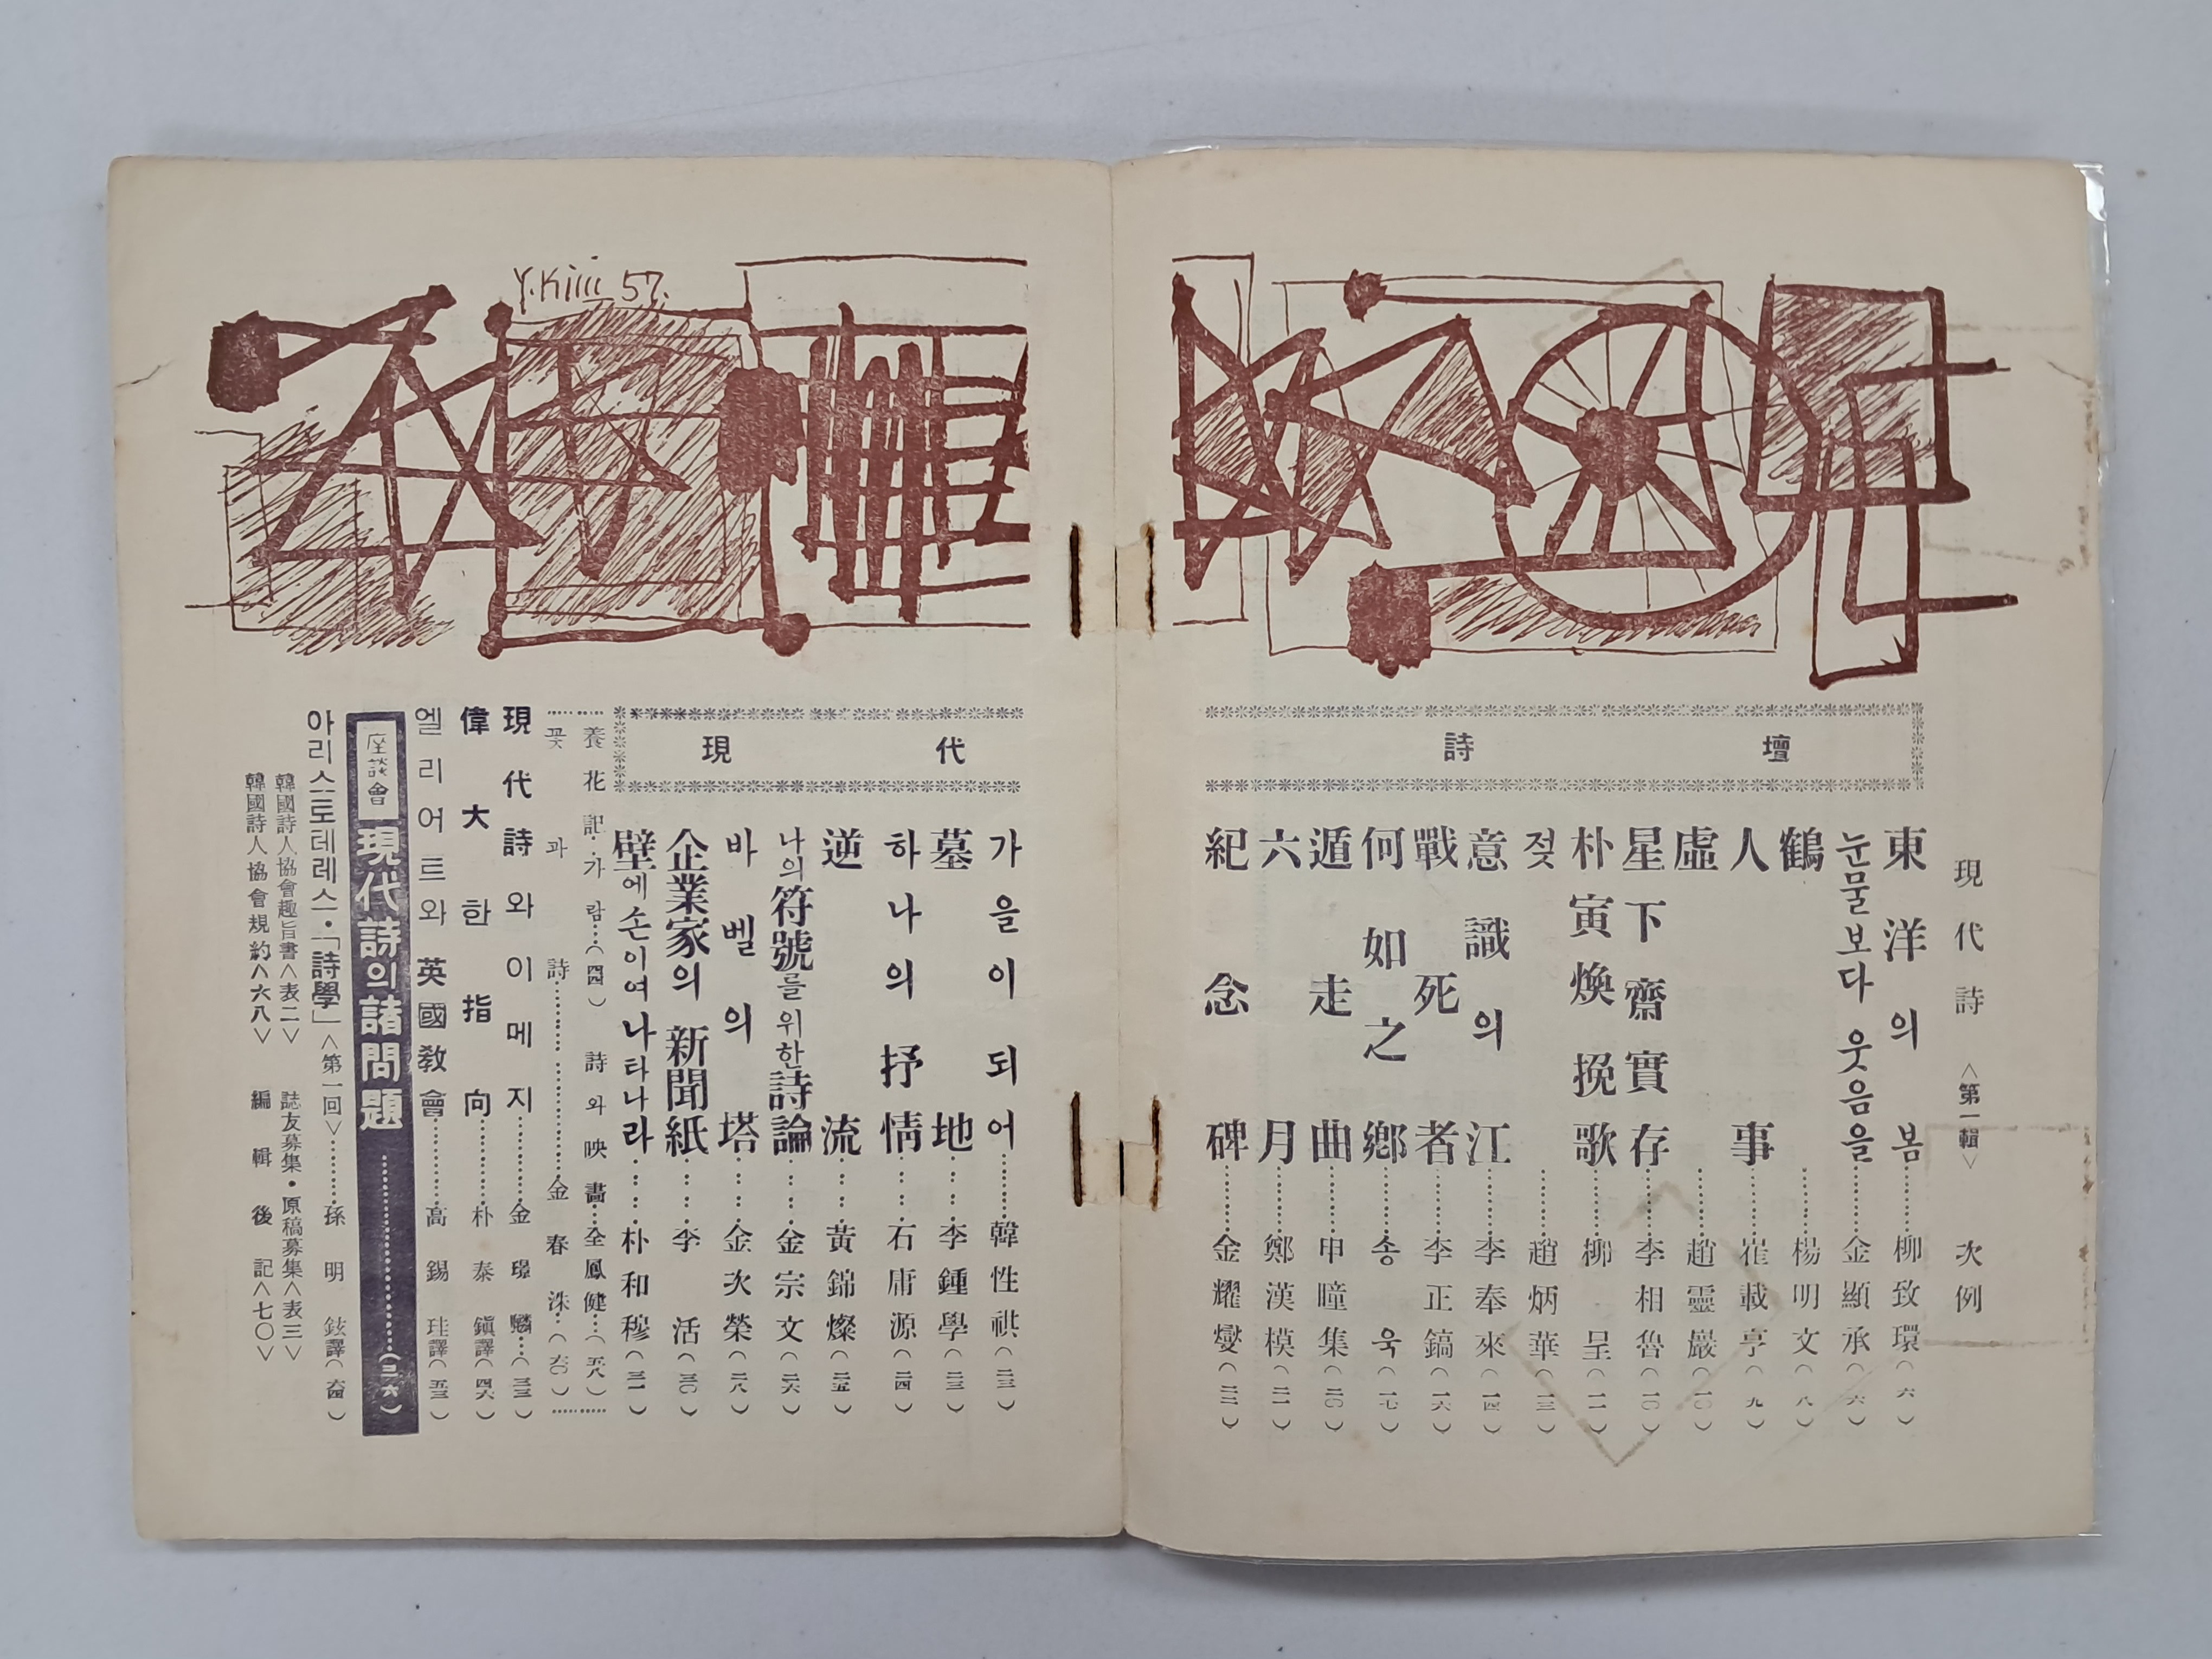 現代詩 <第一輯> 次例
現代詩壇
東洋의 봄………柳致環(六)
눈물보다 웃음을………金顯承(六)
鶴………楊明文(八)
人事………崔載亨(九)
虛………趙靈巖(一〇)
星下齋實存………李相魯(一〇)
朴寅煥挽歌………柳呈(一一)
젖………趙炳華(一三)
意識의 江………李奉來(一四)
戰死者………李正鎬(一六)
何如之鄕………송욱(一七)
遁走曲………申瞳集(二〇)
六月………鄭漢模(二一)
紀念碑………金耀燮(二二)
가을이 되어………韓性祺(二三)
墓地………李鍾學(二三)
하나의 抒情………石庸源(二四)
逆流………黃錦燦(二五)
나의 符號를 위한 詩論………金宗文(二六)
바벨의 塔………金次榮(二八)
企業家의 新聞紙………李活(三〇)
壁에 손이여 나타나라………朴和穆(三一)
養花記·가람…(四四) 詩와 映畵…全鳳健…(五八)
꽃과 詩………金春洙…(六〇)
現代詩와 이메지………金璟麟…(三三)
偉大한 指向………朴泰鎭譯(四六)
엘리어트와 英國敎會………高錫珪譯(五三)
座談會 現代詩의 諸問題………(三六)
아리스토테레스·「詩學」<第一回>………孫明鉉譯(六四)
韓國詩人協會趣旨書<表二> 誌友募集·原稿募集<表三>
韓國詩人協會規約<六八> 編輯後記<七〇>
Y. Kiiii 57.